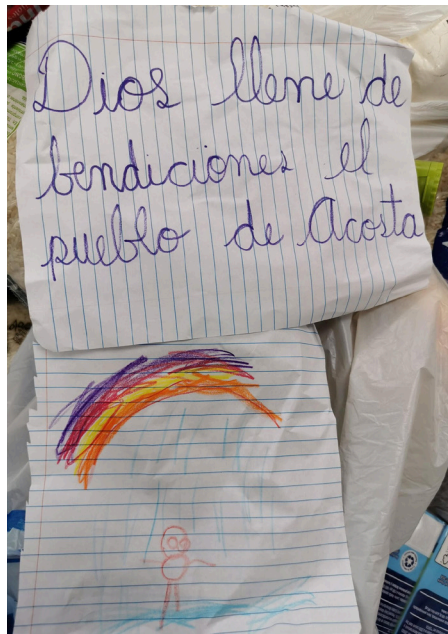 Dios llene de
bendiciones el
pueblo de Acosta